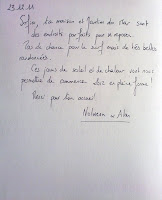 23.12.11
Sofia, ta maison et jardin du rêve sont
des endroits parfaits pour se reposer.
Pas de chance pour le surf mais de très belles
randonnées.
Ces jours de soleil et de chaleur vont nous
permettre de commencer 2012 en pleine forme!
Merci pour ton accueil